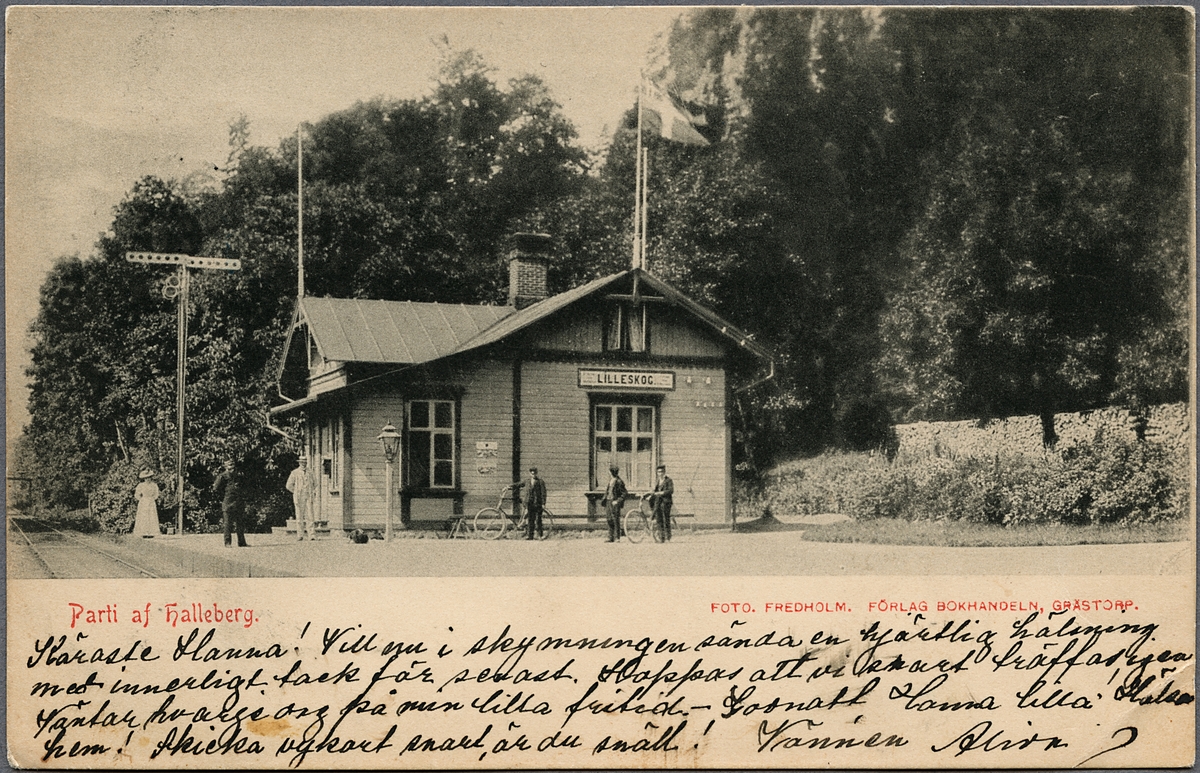 LILLESKOG
Parti af Halleberg.
FOTO. FREDHOLM. FÖRLAG BOKHANDELN, GRÄSTORP.
Käraste Hanna! Vill nu i skymningen sända en hjärtlig hälsning
med innerligt tack för senast. Hoppas att vi snart träffas igen
Väntar hvarje dag på min lilla fritid – Godnatt Hanna lilla! Hälsa
hem! Skicka vykort snart, är du snäll! Vännen